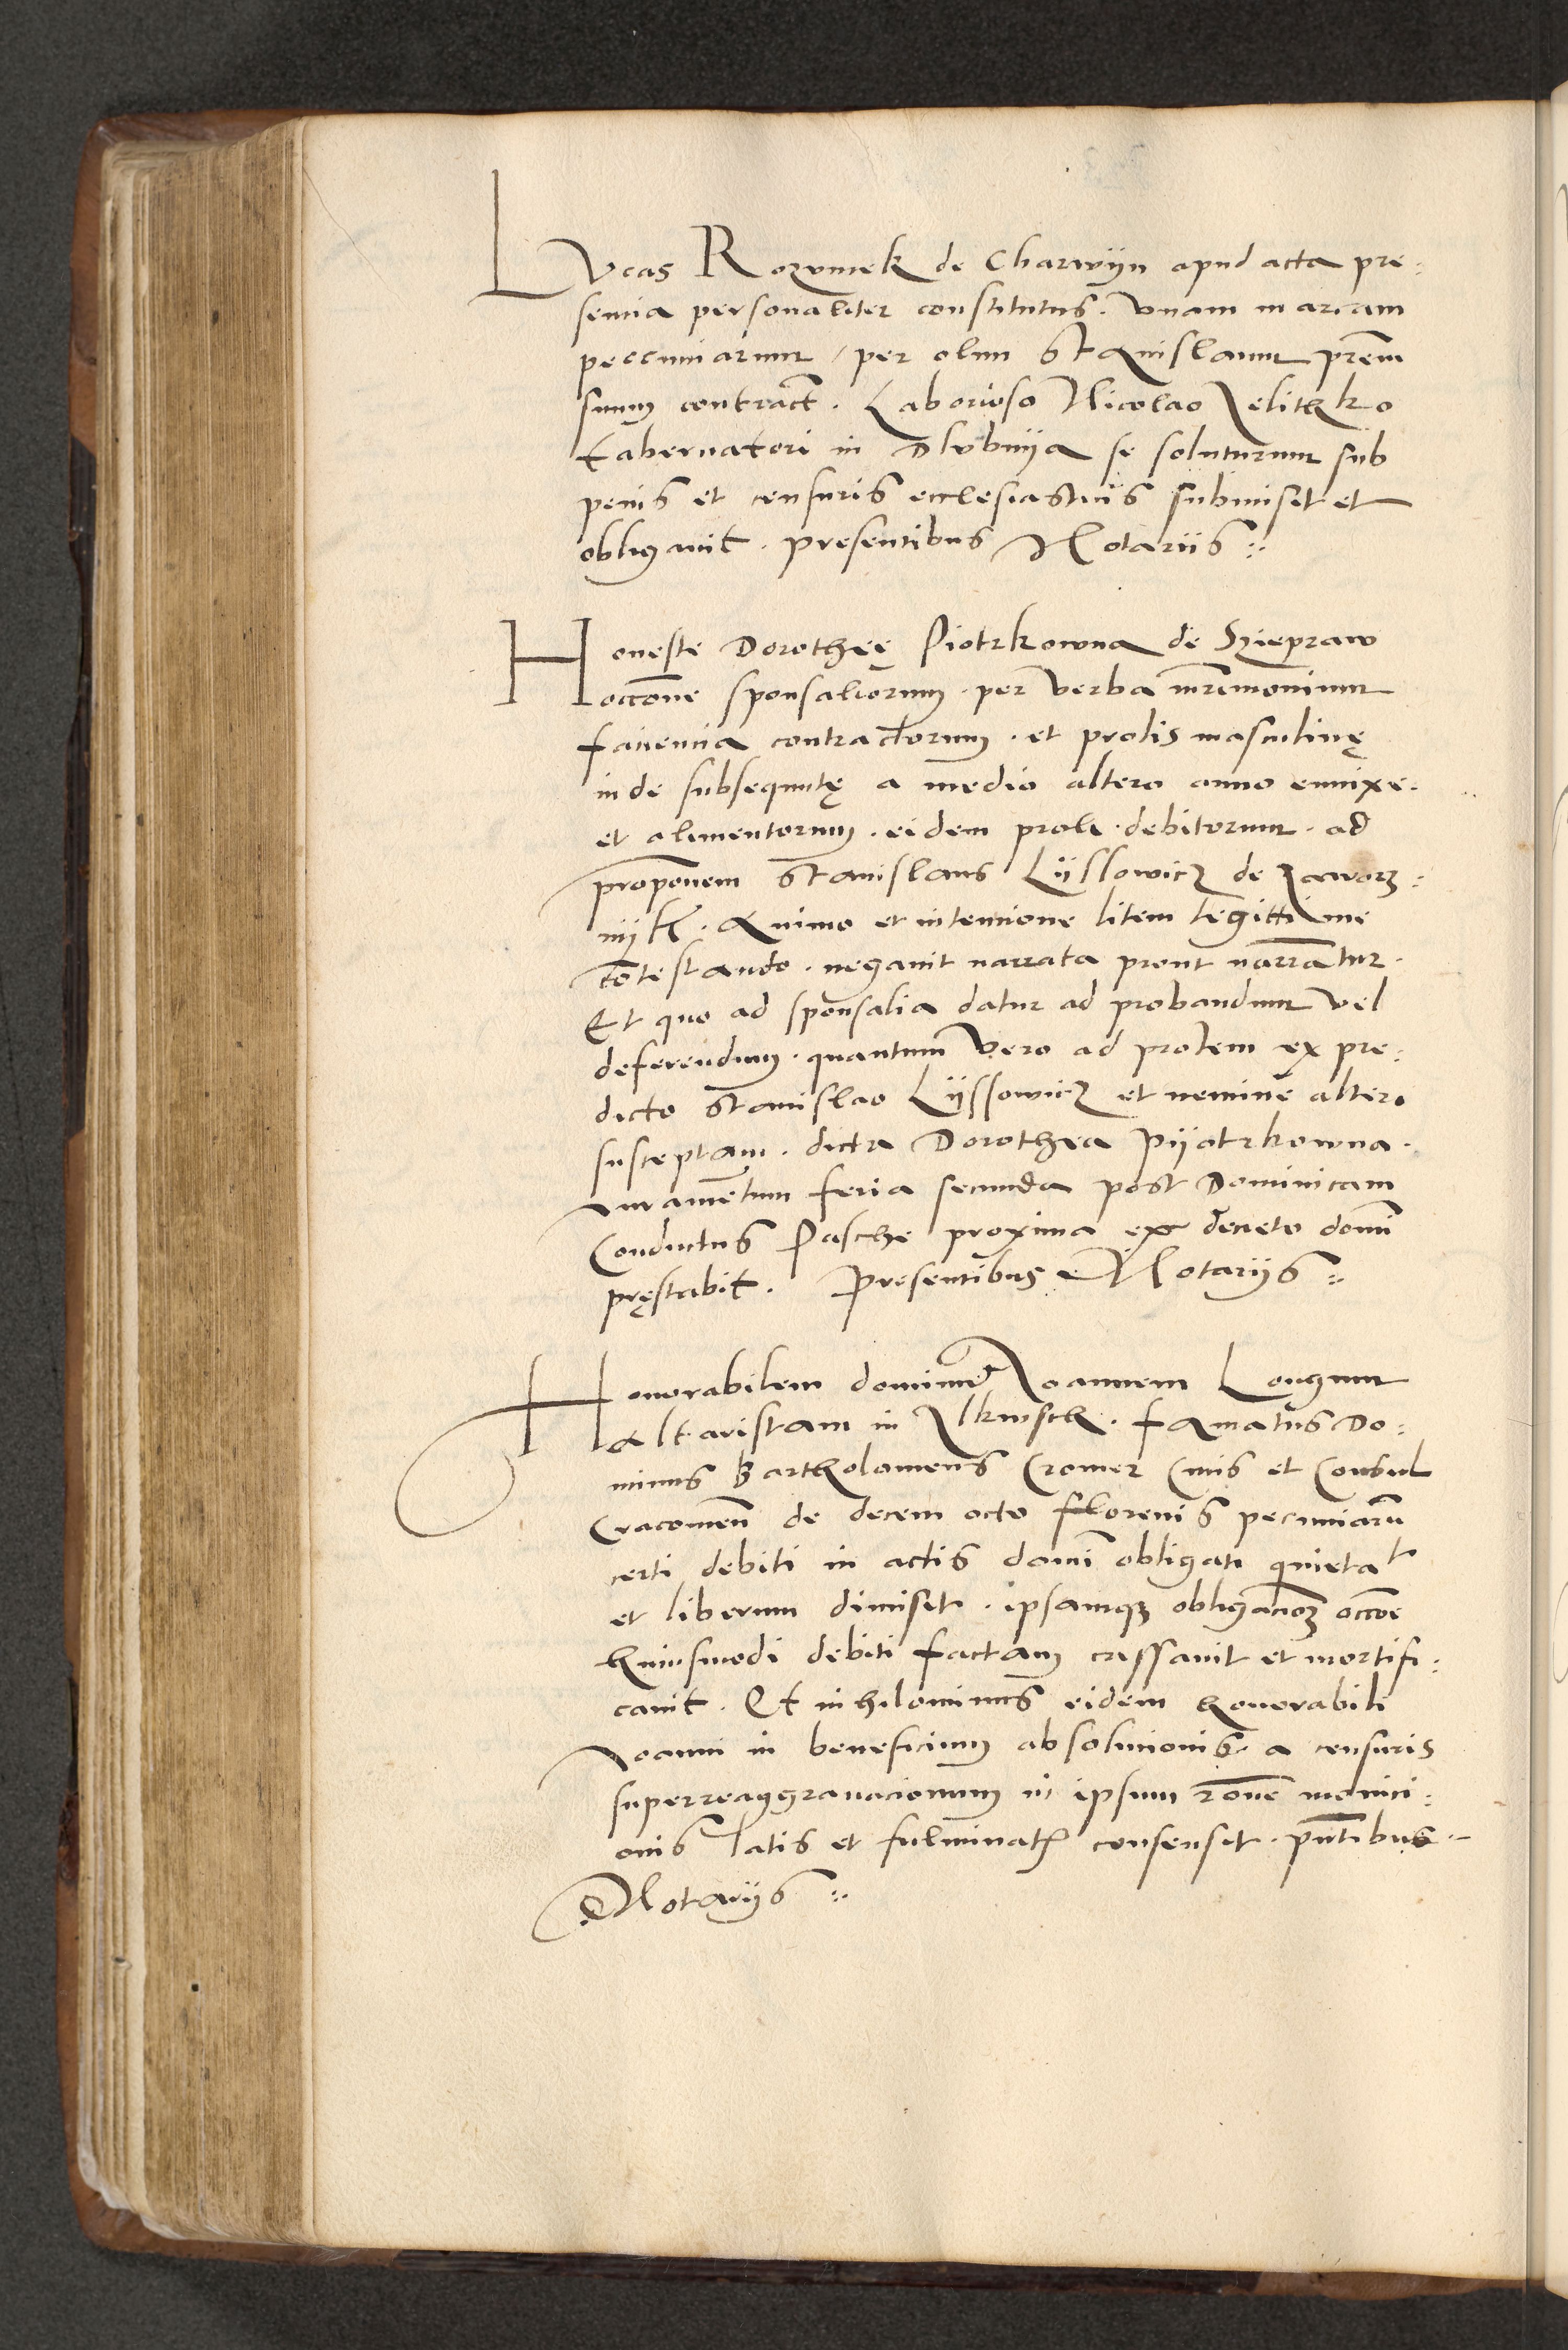 LVcas Rozumek de Charwijn apud acta pre:
sencia personaliter constitutus. vnam marcam
peccuniarum / per olim Stanislaum prem̃
suum contract̃. Laborioso Nicolao Zelithko
tabernatori in Dlubnija se soluturum sub
penis et censuris ecclesiasticis submisit et
obligauit. presentibus Notariis :.
Honeste Dorotheę Piotrkowna de Sziepraw
occõne sponsaliorum. per verba mr̃imonium
faciencia contractorum. et prolis masculinę
inde subsequutę a medio altero anno ennixe.
et alimentorum. eidem proli. debitorum. ad
propõnem Stanislaus Lijssowicz de Jaworz:
nijk. Animo et intencione litem legittime
cõtestando. negauit narrata prout narrãtur.
Et quo ad sponsalia datur ad probandum vel
deferendum. quantum vero ad prolem ex pre:
dicto Stanislao Lijssowicz et nemine altero
susceptam. dicta Dorothea Pijotrkowna.
Juramẽtum feria secunda post Dominicam
Conductus Pasche proxima ex decreto domĩ
pręstabit. Presentibus Notarijs :.
Honorabilem dominũ Joannem Longum
altaristam in Ilkusch. famatus Do:
minus Bartholomeus Cromer Ciuis et Consul
Cracouien̄ de decem octo florenis pecuniarũ
certi debiti in actis domĩ obligati quietat
et liberum dimisit. ipsamqꝫ obligacioꝫ occõe
huiusmodi debiti factam cassauit et mortifi:
cauit. Et nihilominus eidem honorabili
Joanni in beneficium absolucionis a censuris
superreaggrauacionum in ipsum rõne monici:
onis latis et fulminatis consensit. pñtibus.
Notarijs :.